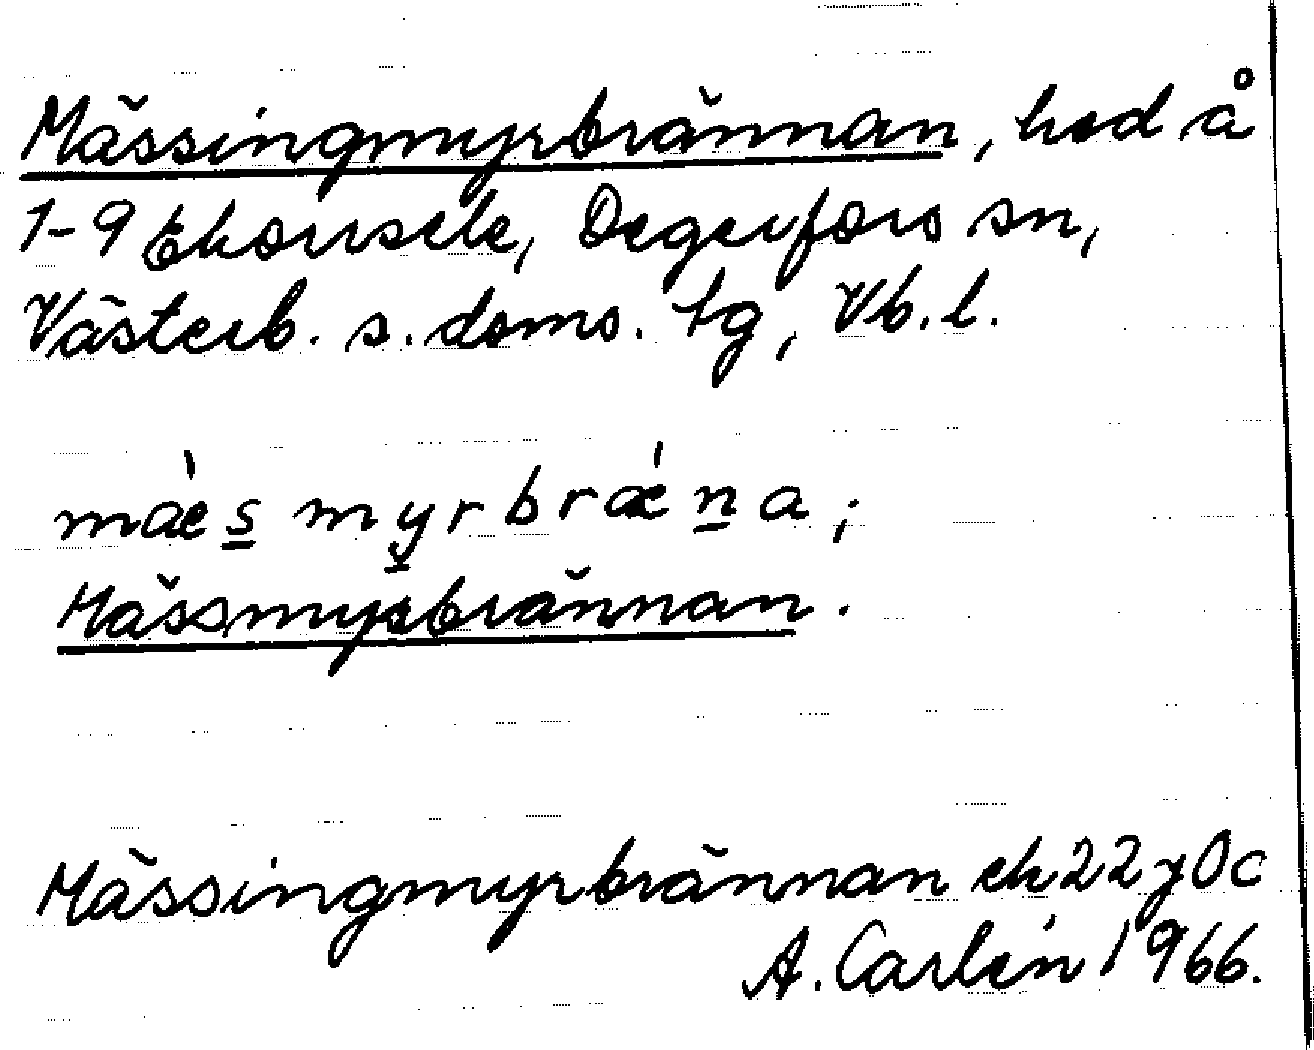 Mässingmyrbrännan, hed å
1-9 Ekorrsele, Degerfors sn,
Västerb. s. doms. tg, Vb. l.
mǽs myrbrǽna;
Mässmyrbrännan.
Mässingmyrbrännan ek 22 y 0c
A. Carlén 1966.